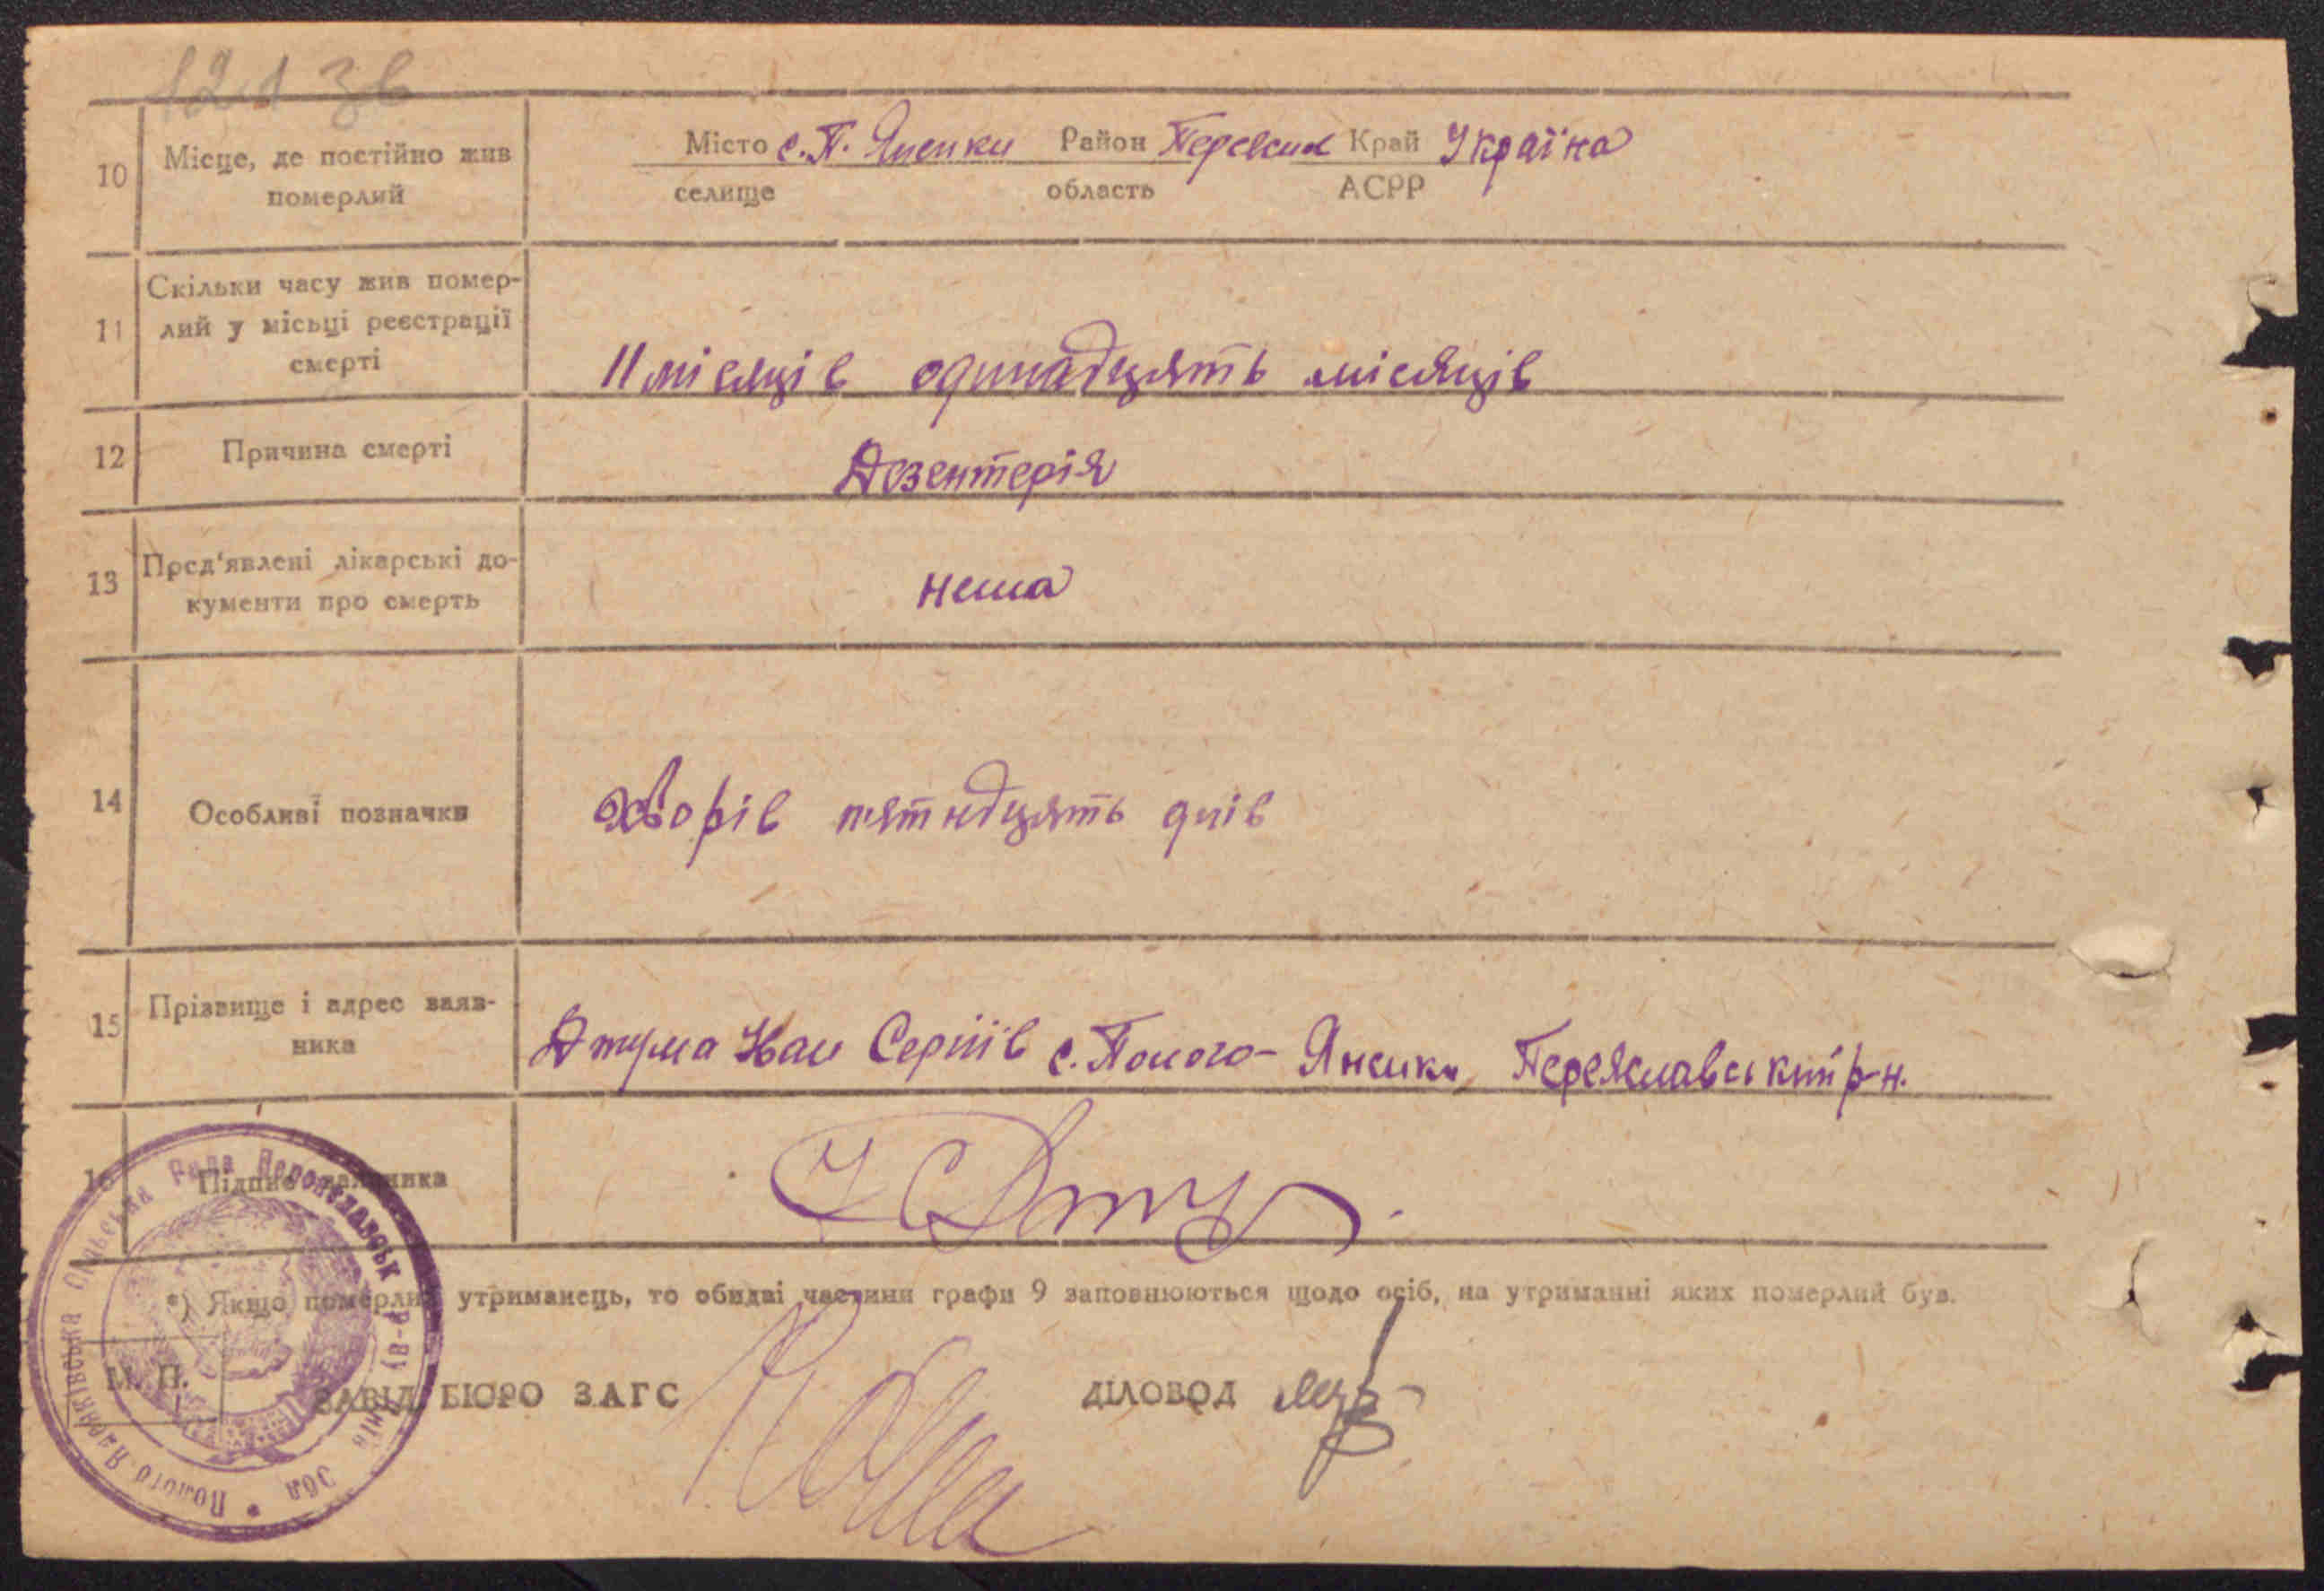 121 зв
10
Місце, де постійно жив
померлий
Місто с. П. Яненки Район Переясл Край Україна
селище область АСРР
11
Скільки часу жив помер-
лий у місьці реєстрації
смерті
11 місяців одинадцять місяців
12
Причина смерті
Дезентерія
13
Пред'явлені лікарські до-
кументи про смерть
нема
14
Особливі позначки
Хворів пятнадцять днів
15
Прізвище і адрес заяв-
ника
Іван Сергіїв с. Полого-Яненки Переяславський р-н.
16
Підпис заявника
*) Якщо померлий утриманець, то обидві частини графи 9 заповнюються щодо осіб, на утриманні яких померлий був.
М. П.
ЗАВІД БЮРО ЗАГС
ДІЛОВОД